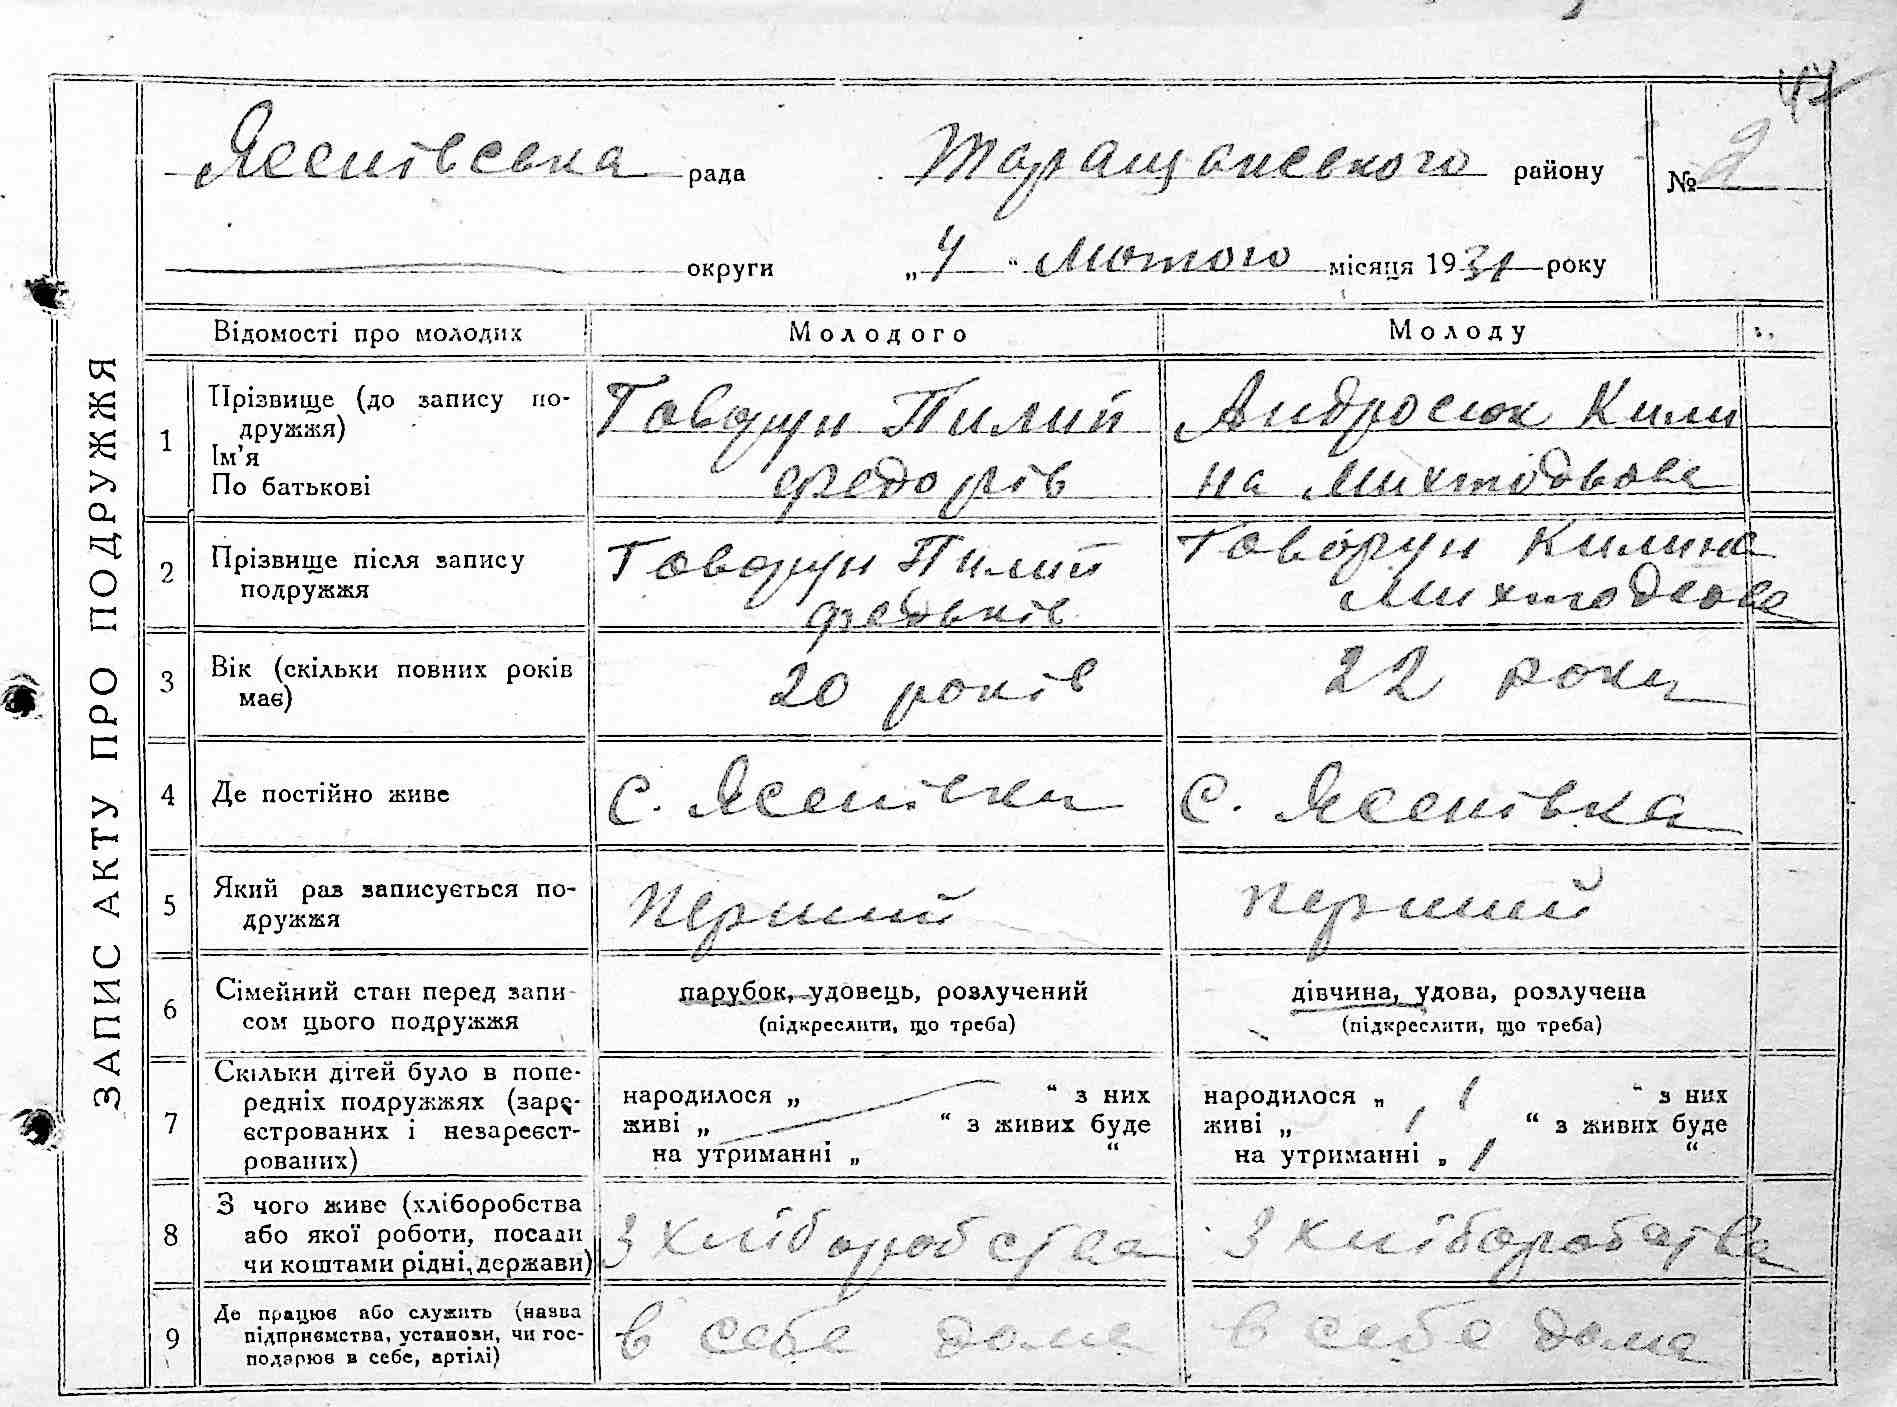 47
Ясенівська рада Таращанського району № 9
округи „4“ Лютого місяця 1931 року
ЗАПИС АКТУ ПРО ПОДРУЖЖЯ
Відомості про молодих Молодого Молоду
1 Прізвище (до запису по-
дружжя)
Ім'я
По батькові
Говорун Пилип
Федорів
Андросюк Кили
на Михтодьова
2 Прізвище після запису
подружжя
Говорун Пилип
Федьків
Говорун Килина
Михтодьова
3 Вік (скільки повних років
має)
20 років
22 роки
4 Де постійно живе с. Ясенівка с. Ясенівка
5 Який раз записується по-
дружжя
перший перший
6 Сімейний стан перед запи-
сом цього подружжя
парубок, удовець, розлучений
(підкреслити, що треба)
дівчина, удова, розлучена
(підкреслити, що треба)
7 Скільки дітей було в попе-
редніх подружжях (заре-
єстрованих і незареєст-
рованих)
народилося „ “ з них
живі „ “ з живих буде
на утриманні „ “
народилося „ “ з них
живі „ “ з живих буде
на утриманні „ “
8 З чого живе (хліборобства
або якої роботи, посади
чи коштами рідні, держави)
З хліборобства З хліборобства
9 Де працює або служить (назва
підприємства, установи, чи гос-
подарює в себе, артілі)
в себе дома в себе дома